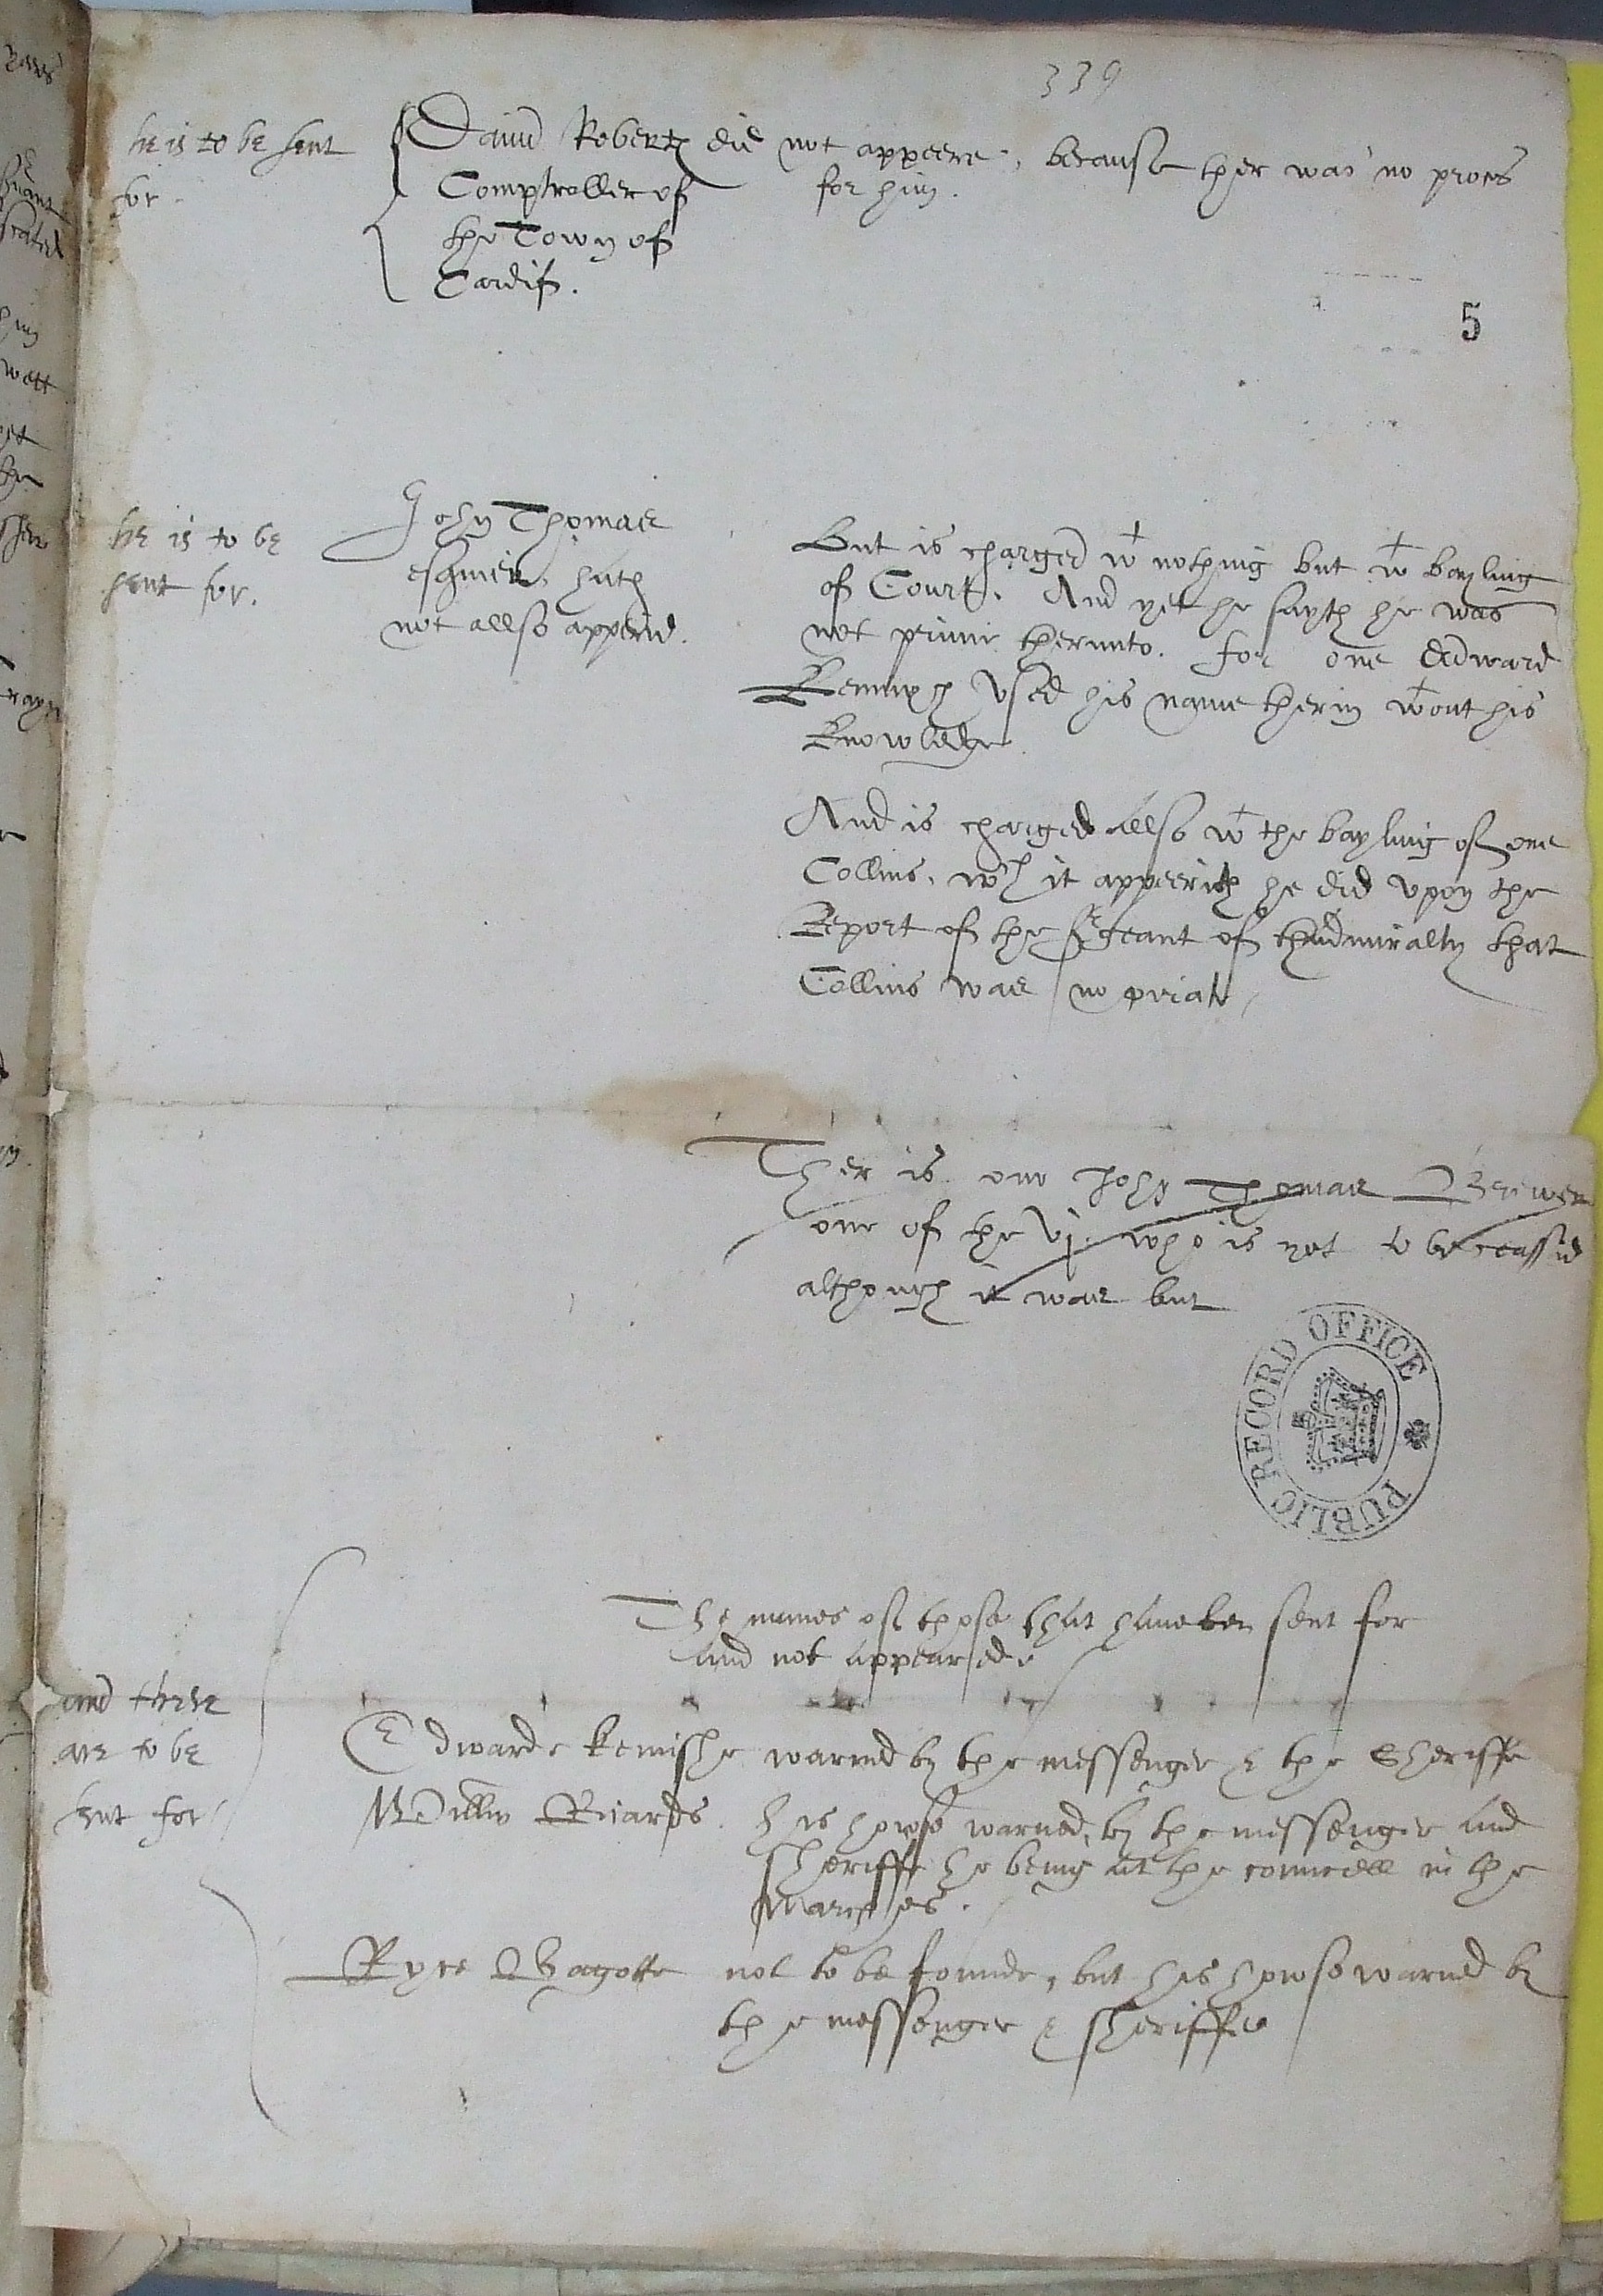 339
he is to be sent
for.
Dauid Robertꝭ did not appeere, because ther was no proces
Comptroller of for him.
the Town of
Cardif.
5
he is to be
sent for.
John Thomas
esquier, hath
not allso apperid.
But is charged wt nothing but wt bayling
of Court. And yet he sayth he was
not priuie therunto. for one Edward
Kemmysh vsed his name therin wtout his
knowledge.
And is charged allso wt the bayling of one
Collins, wch it appeerith he did vpon the
Report of the sergeant of thadmiralty that
Collins was no pirat
Ther is one John Thomas Brewer
one of the vj. who is not to be
although it was but
PUBLIC RECORD OFFICE
The names of those that haue ben sent for
and not appeared.
and these
are to be
sent for
Edwarde kemishe warned by the messenger & the Sheriffe
Willm Ricards. his howse warned, by the messenger and
sheriffe he being at the councell in the
Marches.
Ryce Bagotte not to be founde, but his howse warned by
the messenger & sheriffe